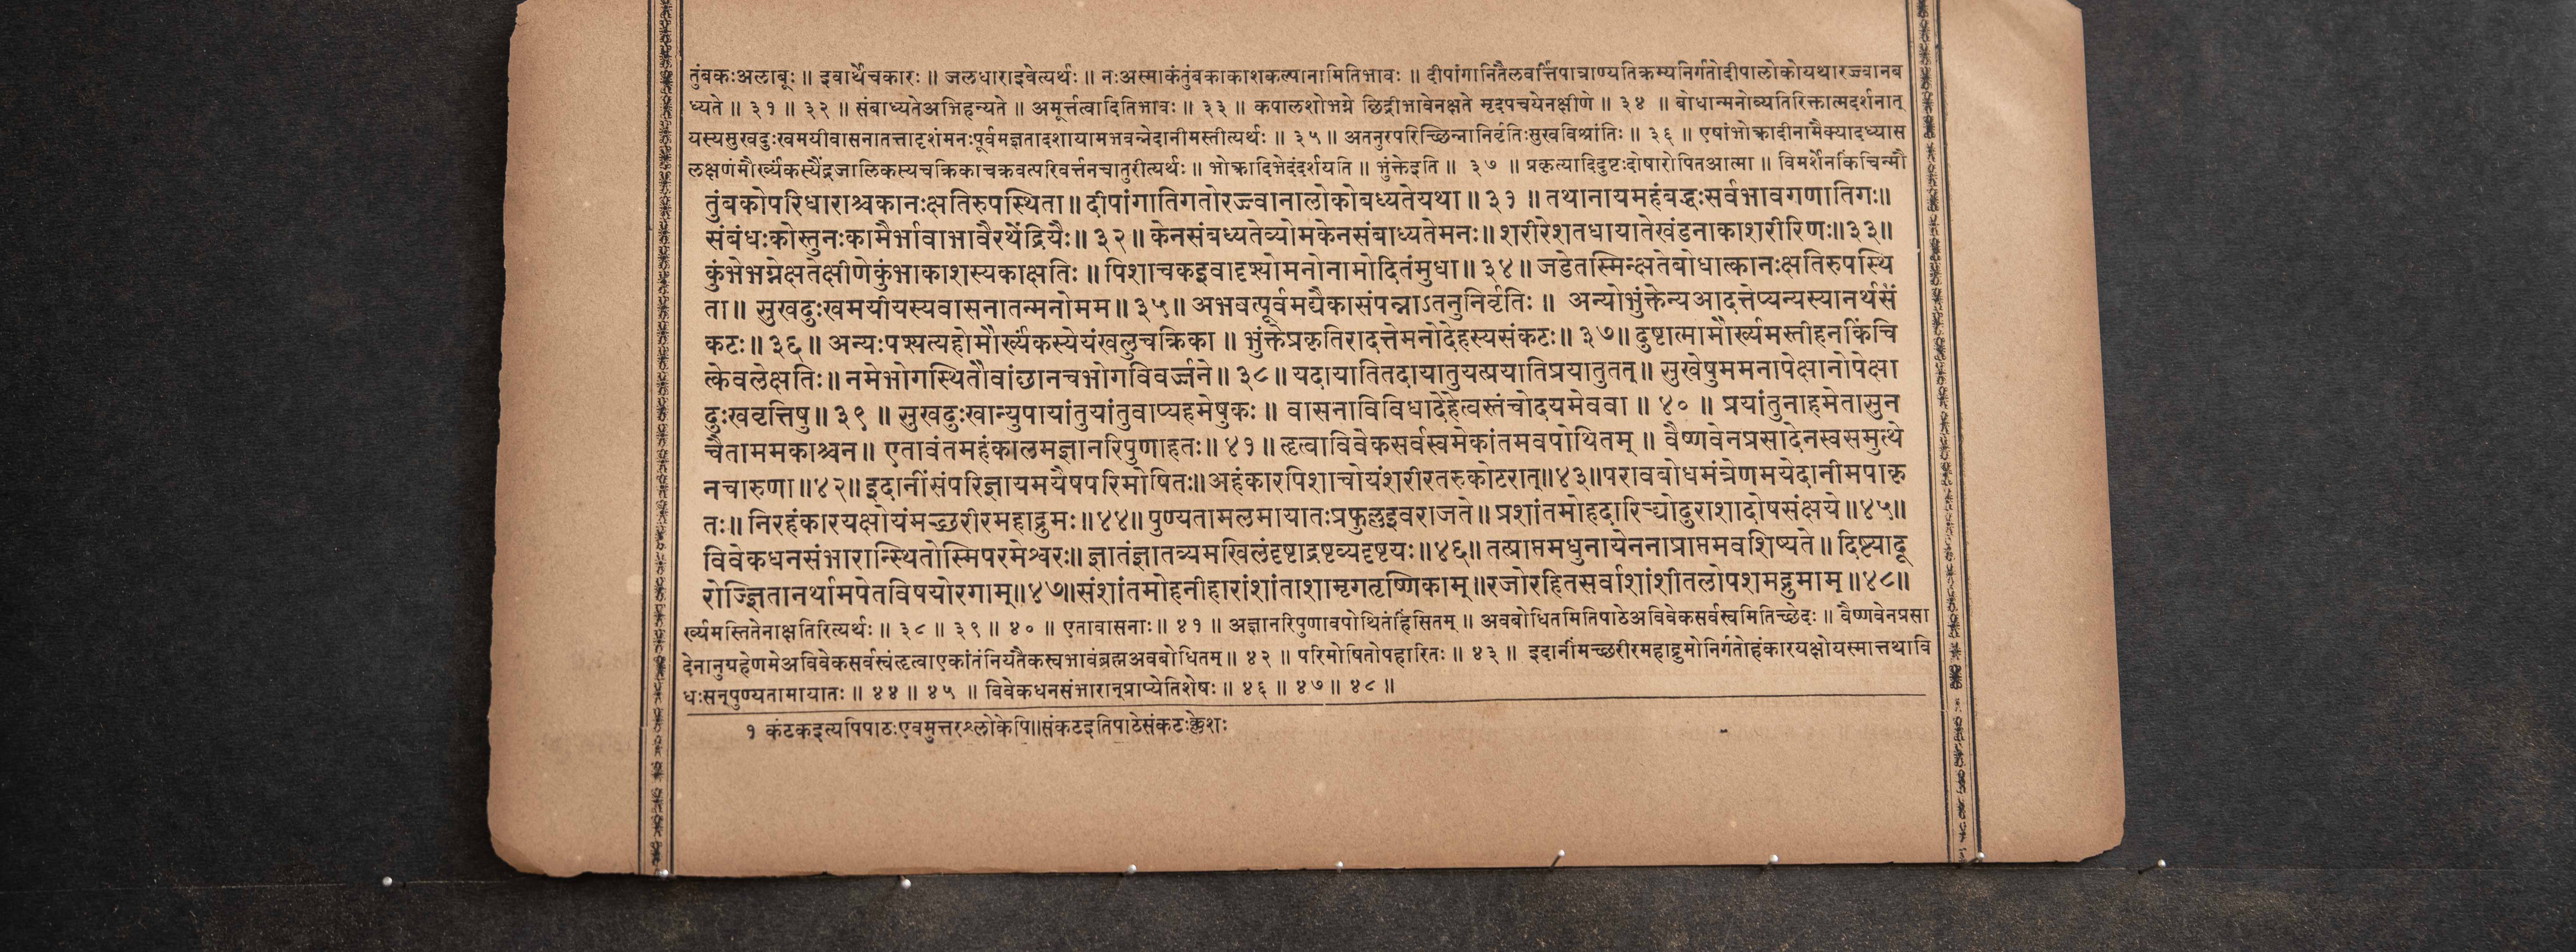 तुंबकःअलाबूः ॥ इवार्थेचकारः ॥ जलधाराइवेत्यर्थः ॥ नःअस्माकंतुंबकाकाशकल्पानामितिभावः ॥ दीपांगानितैलवर्त्तिपात्राण्यतिक्रम्यनिर्गतोदीपालोकोयथारज्ज्वानब
ध्यते ॥ ३१ ॥ ३२ ॥ संबाध्यतेअभिहन्यते ॥ अमूर्त्तत्वादितिभावः ॥ ३३ ॥ कपालशोभग्ने छिद्रीभावेनक्षते मृदपचयेनक्षीणे ॥ ३४ ॥ बोधान्मनोव्यतिरिक्तात्मदर्शनात्
यस्यसुखदुःखमयीवासनातत्तादृशंमनःपूर्वमज्ञतादशायामभवन्नेदानीमस्तीत्यर्थः ॥ ३५ ॥ अतनुरपरिच्छिन्नानिर्वृतिःसुखविश्रांतिः ॥ ३६ ॥ एषांभोक्त्रादीनामैक्यादध्यास
लक्षणंमौर्ख्यंकस्यैंद्रजालिकस्यचक्रिकाचक्रवत्परिवर्त्तनचातुरीत्यर्थः ॥ भोक्त्रादिभेदंदर्शयति ॥ भुंक्तेइति ॥ ३७ ॥ प्रकृत्यादिदुष्टःदोषारोपितआत्मा ॥ विमर्शेनकिंचिन्मौ
तुंबकोपरिधाराश्चकानःक्षतिरुपस्थिता॥ दीपांगातिगतोरज्ज्वानालोकोबध्यतेयथा॥ ३१ ॥ तथानायमहंबद्धःसर्वभावगणातिगः॥
संबंधःकोस्तुनःकामैर्भावाभावैरथेंद्रियैः॥ ३२॥ केनसंबध्यतेव्योमकेनसंबाध्यतेमनः॥ शरीरेशतधायातेखंडनाकाशरीरिणः॥३३॥
कुंभेभग्नेक्षतेक्षीणेकुंभाकाशस्यकाक्षतिः ॥ पिशाचकइवादृश्योमनोनामोदितंमुधा॥ ३४॥ जडेतस्मिन्क्षतेबोधात्कानःक्षतिरुपस्थि
ता॥ सुखदुःखमयीयस्यवासनातन्मनोमम॥ ३५॥ अभवत्पूर्वमद्यैकासंपन्नाऽतनुनिर्वृतिः ॥ अन्योभुंक्तेन्यआदत्तेप्यन्यस्यानर्थसं
कटः॥ ३६॥ अन्यःपश्यत्यहोमौर्ख्यंकस्येयंखलुचक्रिका ॥ भुंक्तेप्रकृतिरादत्तेमनोदेहस्यसंकटः॥ ३७॥ दुष्टात्मामौर्ख्यमस्तीहनकिंचि
त्केवलेक्षतिः॥ नमेभोगस्थितौवांछानचभोगविवर्ज्जने॥ ३८॥ यदायातितदायातुयत्प्रयातिप्रयातुतत्॥ सुखेषुममनापेक्षानोपेक्षा
दुःखवृत्तिषु॥ ३९ ॥ सुखदुःखान्युपायांतुयांतुवाप्यहमेषुकः ॥ वासनाविविधादेहेत्वस्तंचोदयमेववा ॥ ४० ॥ प्रयांतुनाहमेतासुन
चैताममकाश्चन॥ एतावंतमहंकालमज्ञानरिपुणाहतः॥ ४१॥ हृत्वाविवेकसर्वस्वमेकांतमवपोथितम् ॥ वैष्णवेनप्रसादेनस्वसमुत्थे
नचारुणा॥४२॥ इदानींसंपरिज्ञायमयैषपरिमोषितः॥अहंकारपिशाचोयंशरीरतरुकोटरात्॥४३॥परावबोधमंत्रेणमयेदानीमपाकृ
तः॥ निरहंकारयक्षोयंमच्छरीरमहाद्रुमः॥४४॥ पुण्यतामलमायातःप्रफुल्लइवराजते॥ प्रशांतमोहदारिद्र्योदुराशादोषसंक्षये॥४५॥
विवेकधनसंभारान्स्थितोस्मिपरमेश्वरः॥ ज्ञातंज्ञातव्यमखिलंदृष्टाद्रष्टव्यदृष्टयः॥४६॥ तत्प्राप्तमधुनायेननाप्राप्तमवशिष्यते॥ दिष्ट्यादू
रोज्झितानर्थामपेतविषयोरगाम्॥४७॥संशांतमोहनीहारांशांताशामृगतृष्णिकाम्॥रजोरहितसर्वाशांशीतलोपशमद्रुमाम्॥४८॥
र्ख्यमस्तितेनाक्षतिरित्यर्थः ॥ ३८ ॥ ३९ ॥ ४० ॥ एतावासनाः॥ ४१ ॥ अज्ञानरिपुणावपोथितंहिंसितम् ॥ अवबोधितमितिपाठेअविवेकसर्वस्वमितिच्छेदः ॥ वैष्णवेनप्रसा
देनानुग्रहेणमेअविवेकसर्वस्वंहृत्वाएकांतंनियतैकस्वभावंब्रह्मअवबोधितम्॥ ४२ ॥ परिमोषितोपहारितः ॥ ४३ ॥ इदानींमच्छरीरमहाद्रुमोनिर्गतोहंकारयक्षोयस्मात्तथावि
धःसन्पुण्यतामायातः ॥ ४४ ॥ ४५ ॥ विवेकधनसंभारान्प्राप्येतिशेषः ॥ ४६ ॥ ४७॥ ४८ ॥
१ कंटकइत्यपिपाठःएवमुत्तरश्लोकेपि॥संकटइतिपाठेसंकटःक्लेशः